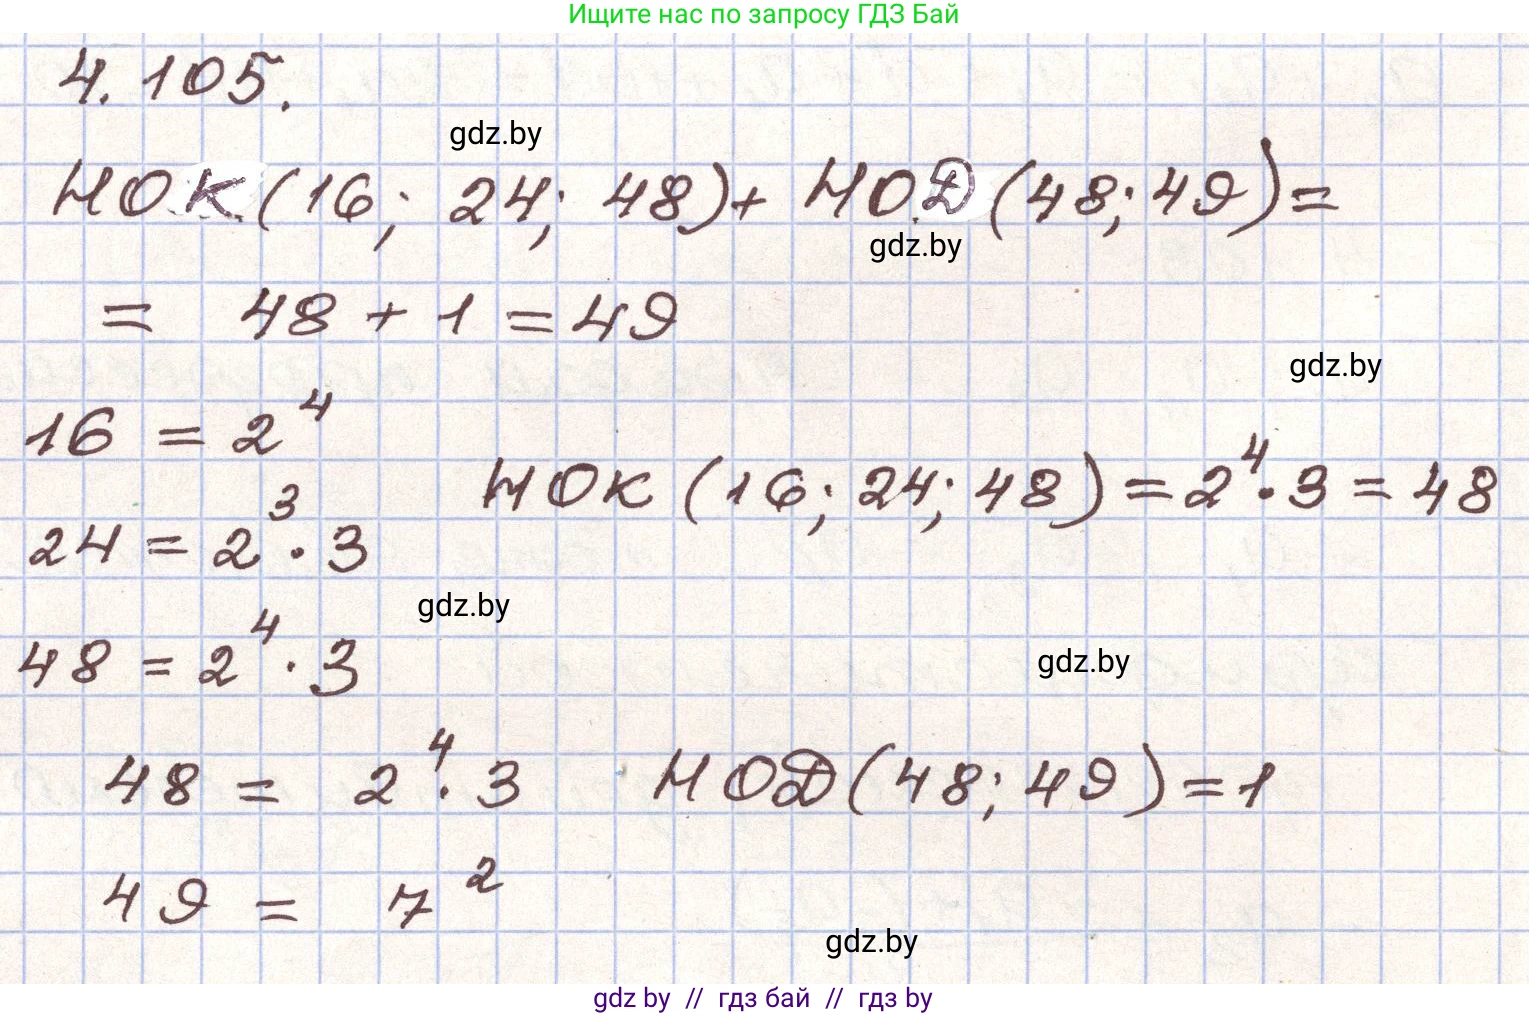 Ищите нас по запросу ГДЗ Бай
4.105.
gdz.by
НОК(16; 24; 48)+ НОД(48; 49)=
gdz.by
= 48 + 1 = 49
gdz.by
16 = 2⁴
НОК (16; 24; 48) = 2⁴ · 3 = 48
24 = 2³ · 3
gdz.by
48 = 2⁴ · 3
gdz.by
48 = 2⁴ · 3 НОД(48; 49) = 1
49 = 7²
gdz.by
gdz by // гдз бай // гдз by